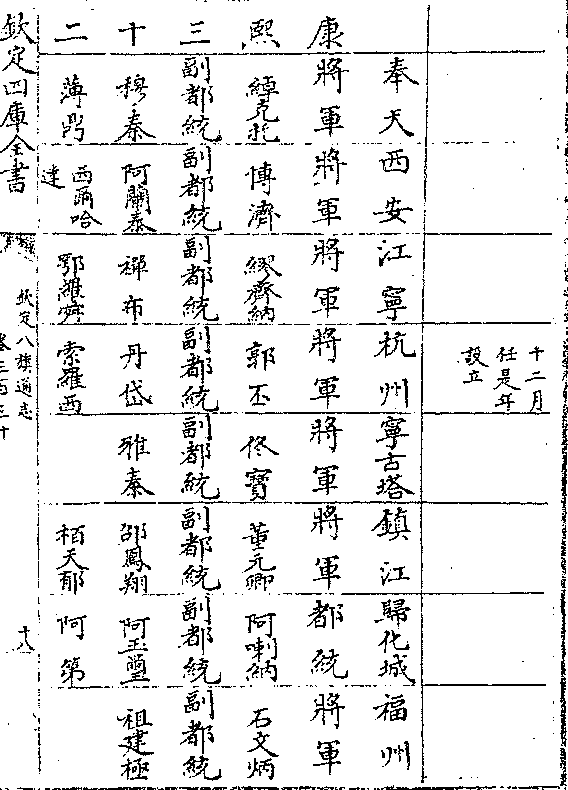 十二月
任是年
設立
奉天 西安 江寧 杭州 寧古塔 鎮江 歸化城 福州
康 將軍 將軍 將軍 將軍 將軍 將軍 都統 將軍
熙 綽克托 博濟 繆齊納 郭丕 佟寶 董元卿 阿喇納 石文炳
三 副都統 副都統 副都統 副都統 副都統 副都統 副都統 副都統
十 穆泰 阿蘭泰 禪布 丹岱 雅秦 邵鳳翔 阿玉璽 祖建極
二 薄鼎 西爾哈達 鄂羅舜 索羅西 栢天郁 阿第
欽定四庫全書
欽定八旗通志
卷三百三十
十八